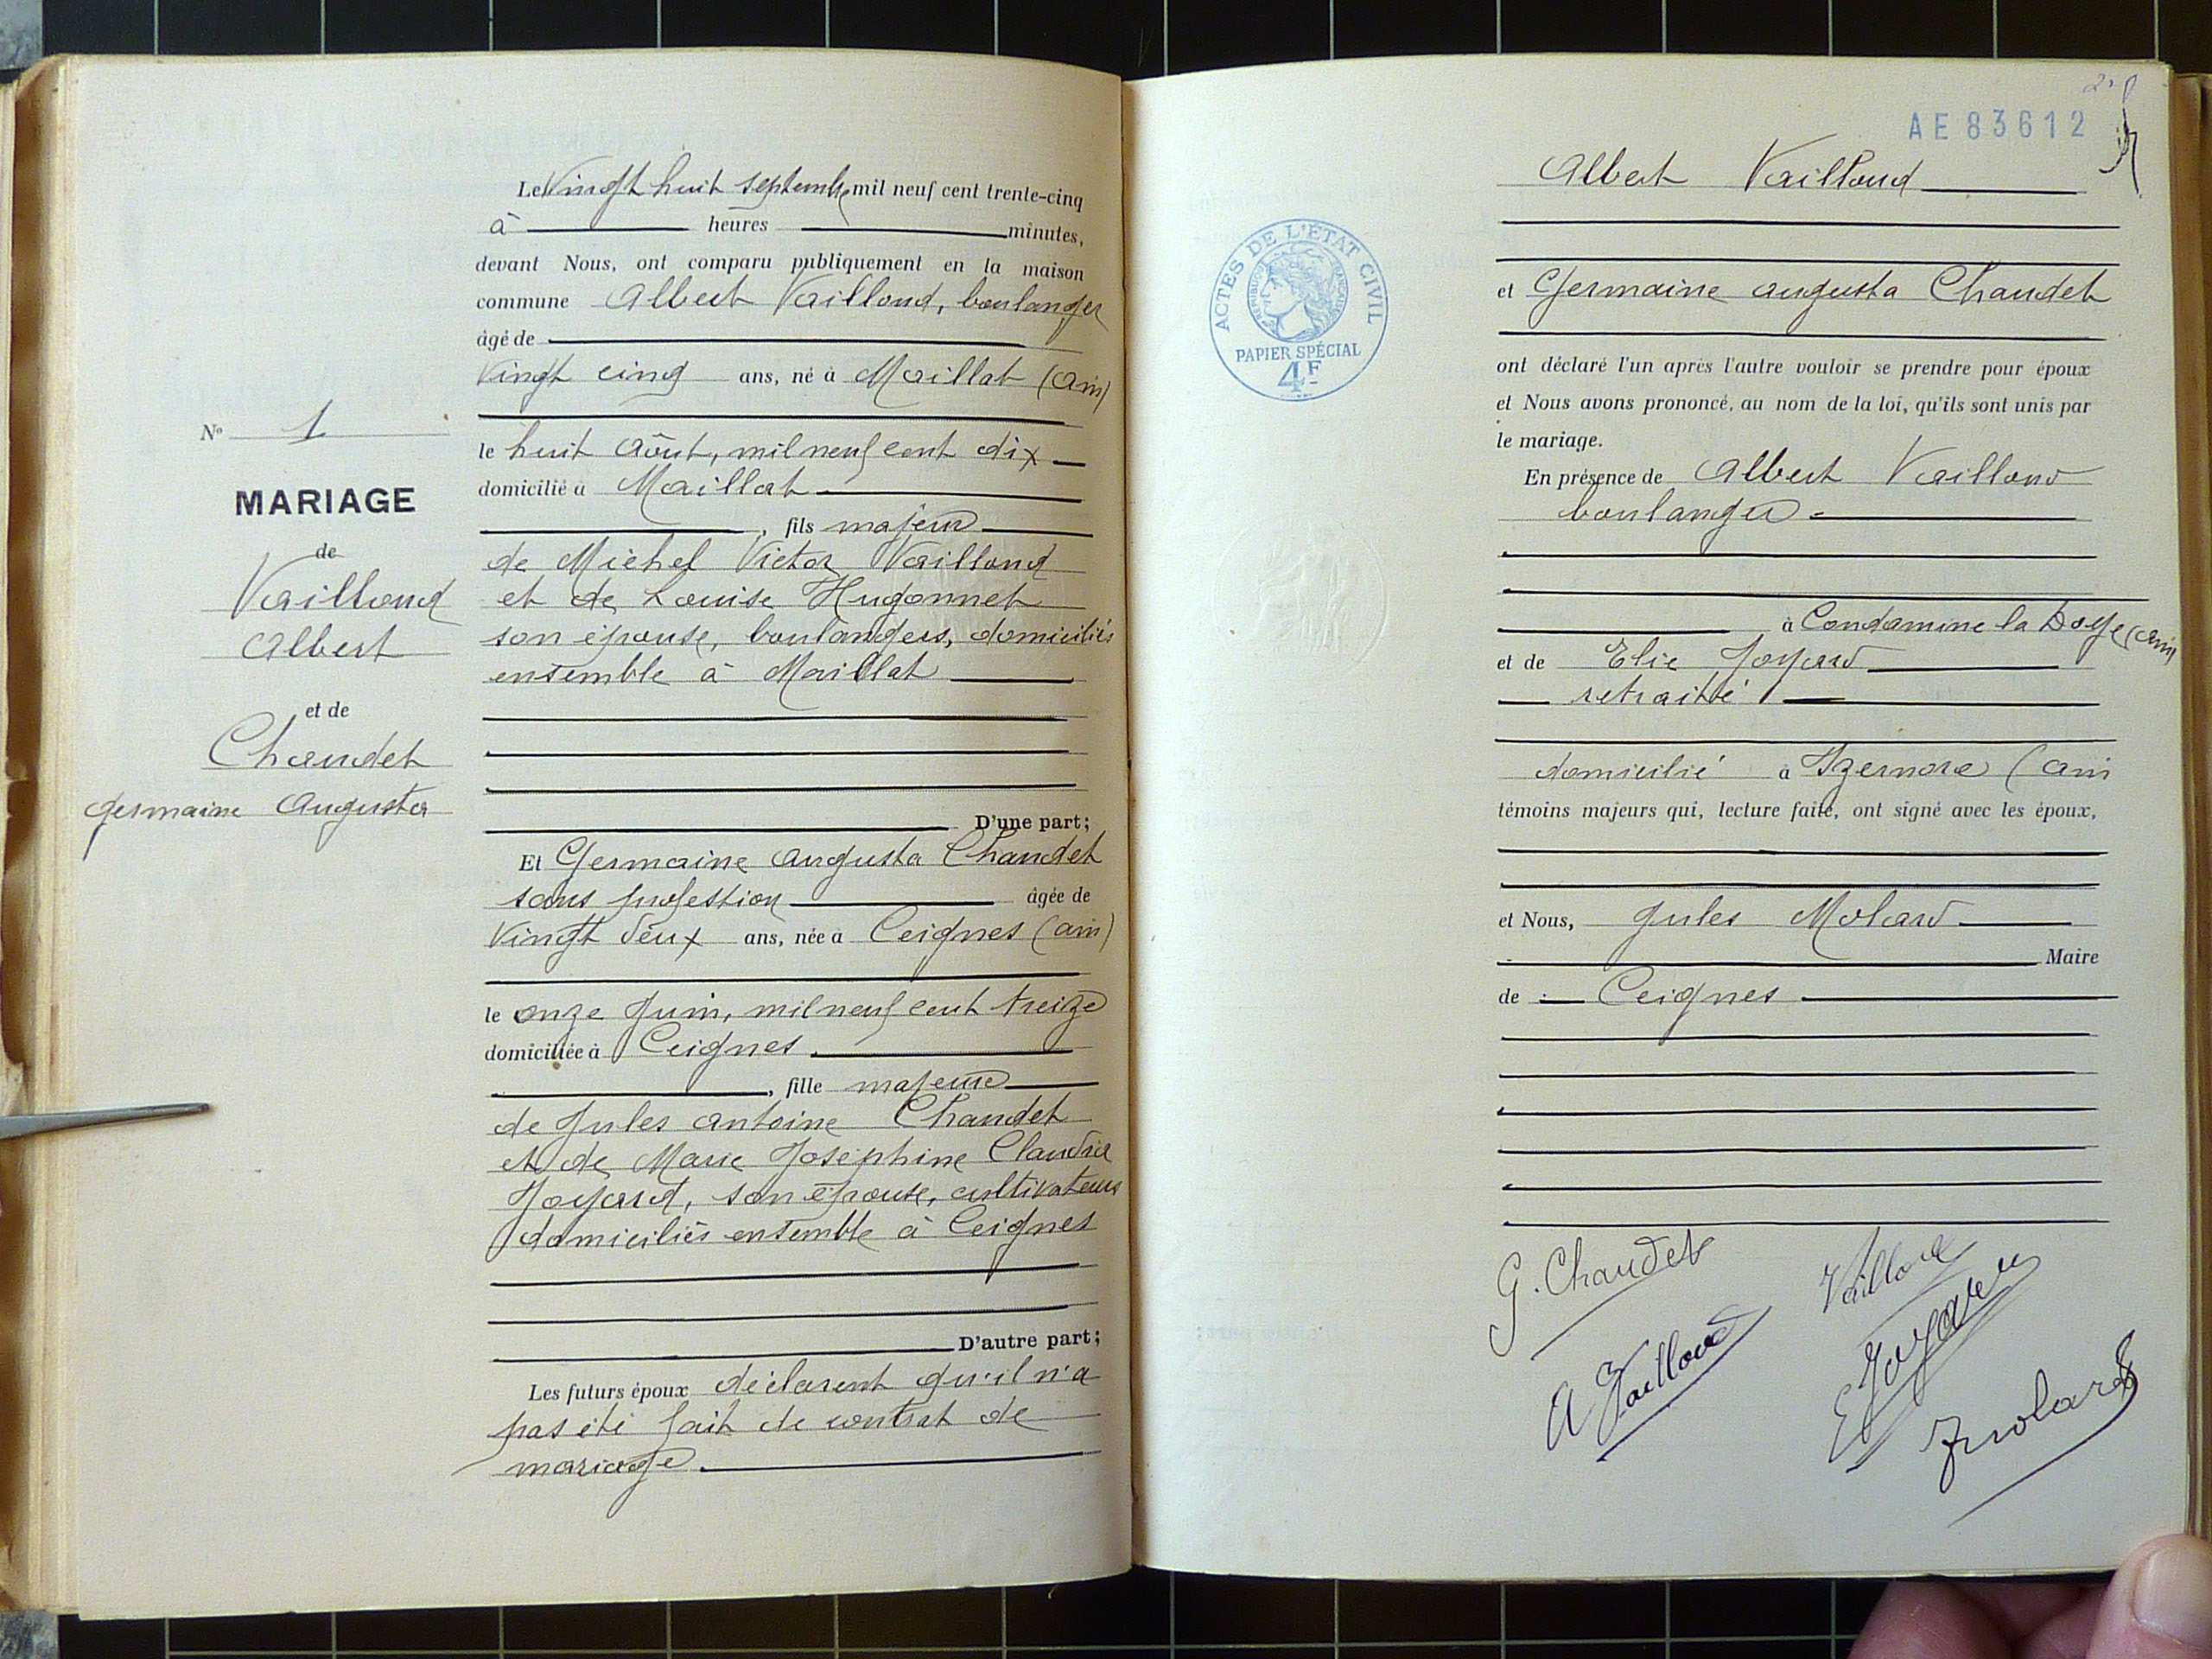 Le Vingt huit septembre mil neuf cent trente-cinq
à heures minutes,
devant Nous, ont comparu publiquement en la maison
commune Albert Vailloud, boulanger
âgé de
Vingt cinq ans, né à Maillat (Ain)
le huit Août, mil neuf cent dix
domicilié à Maillat
, fils majeur
de Michel Victor Vailloud
et de Louise Hugonnet
son épouse, boulangers, domiciliés
ensemble à Maillat
D'une part;
Et Germaine Augusta Chaudet
sans profession âgée de
Vingt deux ans, née à Ceignes (ain)
le onze Juin, mil neuf cent treize
domiciliée à Ceignes
, fille majeure
de Jules Antoine Chaudet
et de Marie Joséphine Claudia
Joyard, son épouse, cultivateurs
domiciliés ensemble à Ceignes
D'autre part;
Les futurs époux déclarent qu'il n'a
pas été fait de contrat de
mariage.
N° 1
MARIAGE
de
Vailloud
Albert
et de
Chaudet
Germaine Augusta
AE 83612
ACTES DE L'ÉTAT CIVIL
RÉPUBLIQUE FRANÇAISE
PAPIER SPÉCIAL
4F
Albert Vailloud
et Germaine Augusta Chaudet
ont déclaré l'un après l'autre vouloir se prendre pour époux
et Nous avons prononcé, au nom de la loi, qu'ils sont unis par
le mariage.
En présence de Albert Vailloud
boulanger
à Condamine la Doye (ain)
et de Elie Joyard
retraité
domicilié à Izernore (ain
témoins majeurs qui, lecture faite, ont signé avec les époux,
et Nous, Jules Molard
Maire
de Ceignes
G. Chaudet
Vailloud
A Vailloud
E Joyard
J Molard